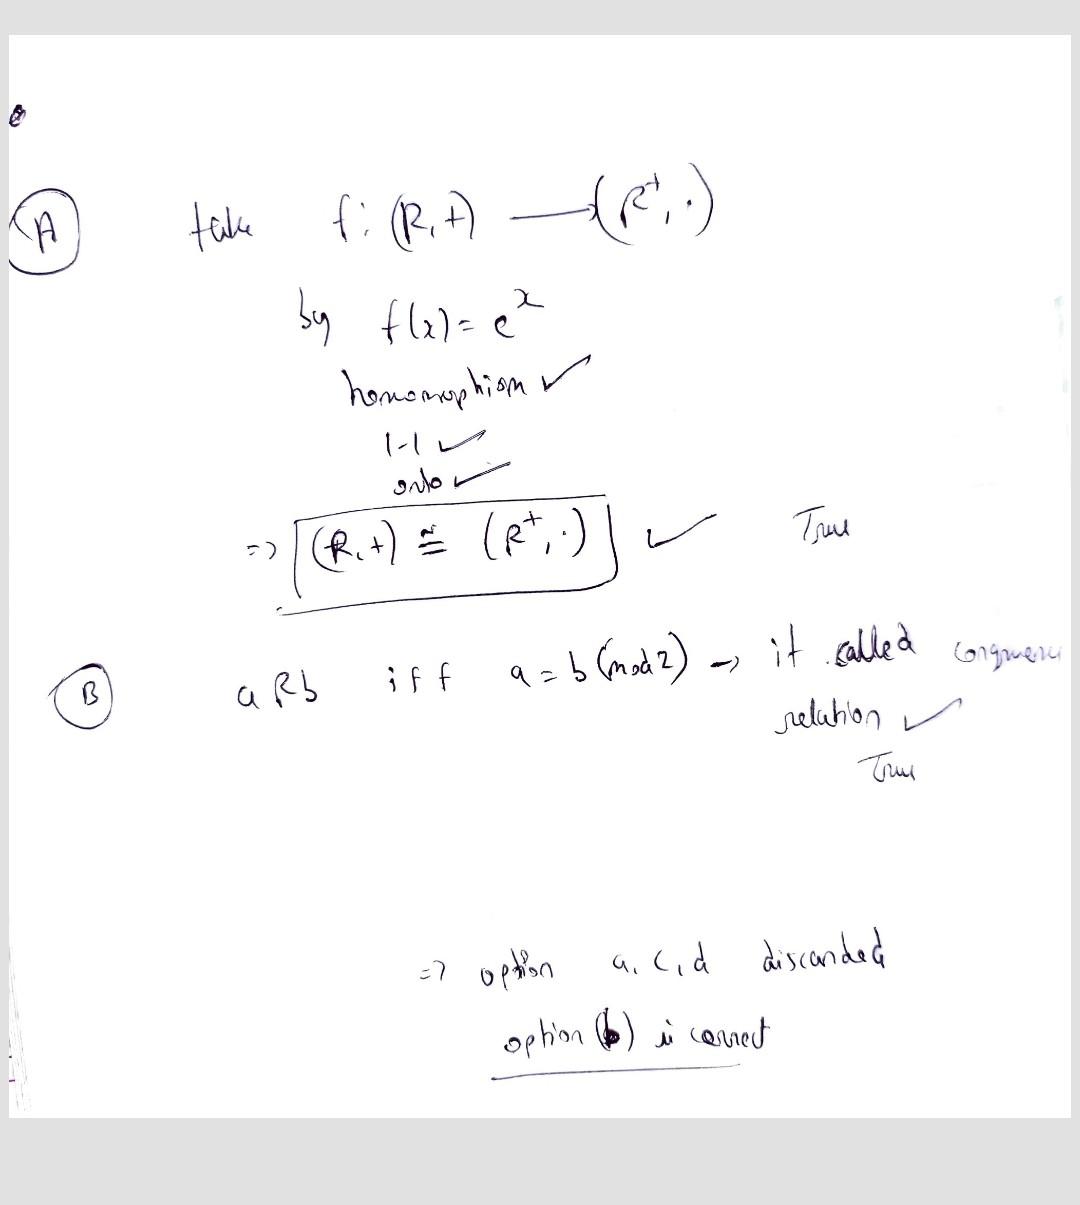 A take f: (R, +) → (R⁺, ·)
by f(x) = eˣ
homomophism ✓
1-1 ✓
onto ✓
=> (R, +) ≅ (R⁺, ·) ✓ True
B a R b iff a = b (mod 2) → it called congruence
relation ✓
True
=> option a, c, d discarded
option (b) is correct